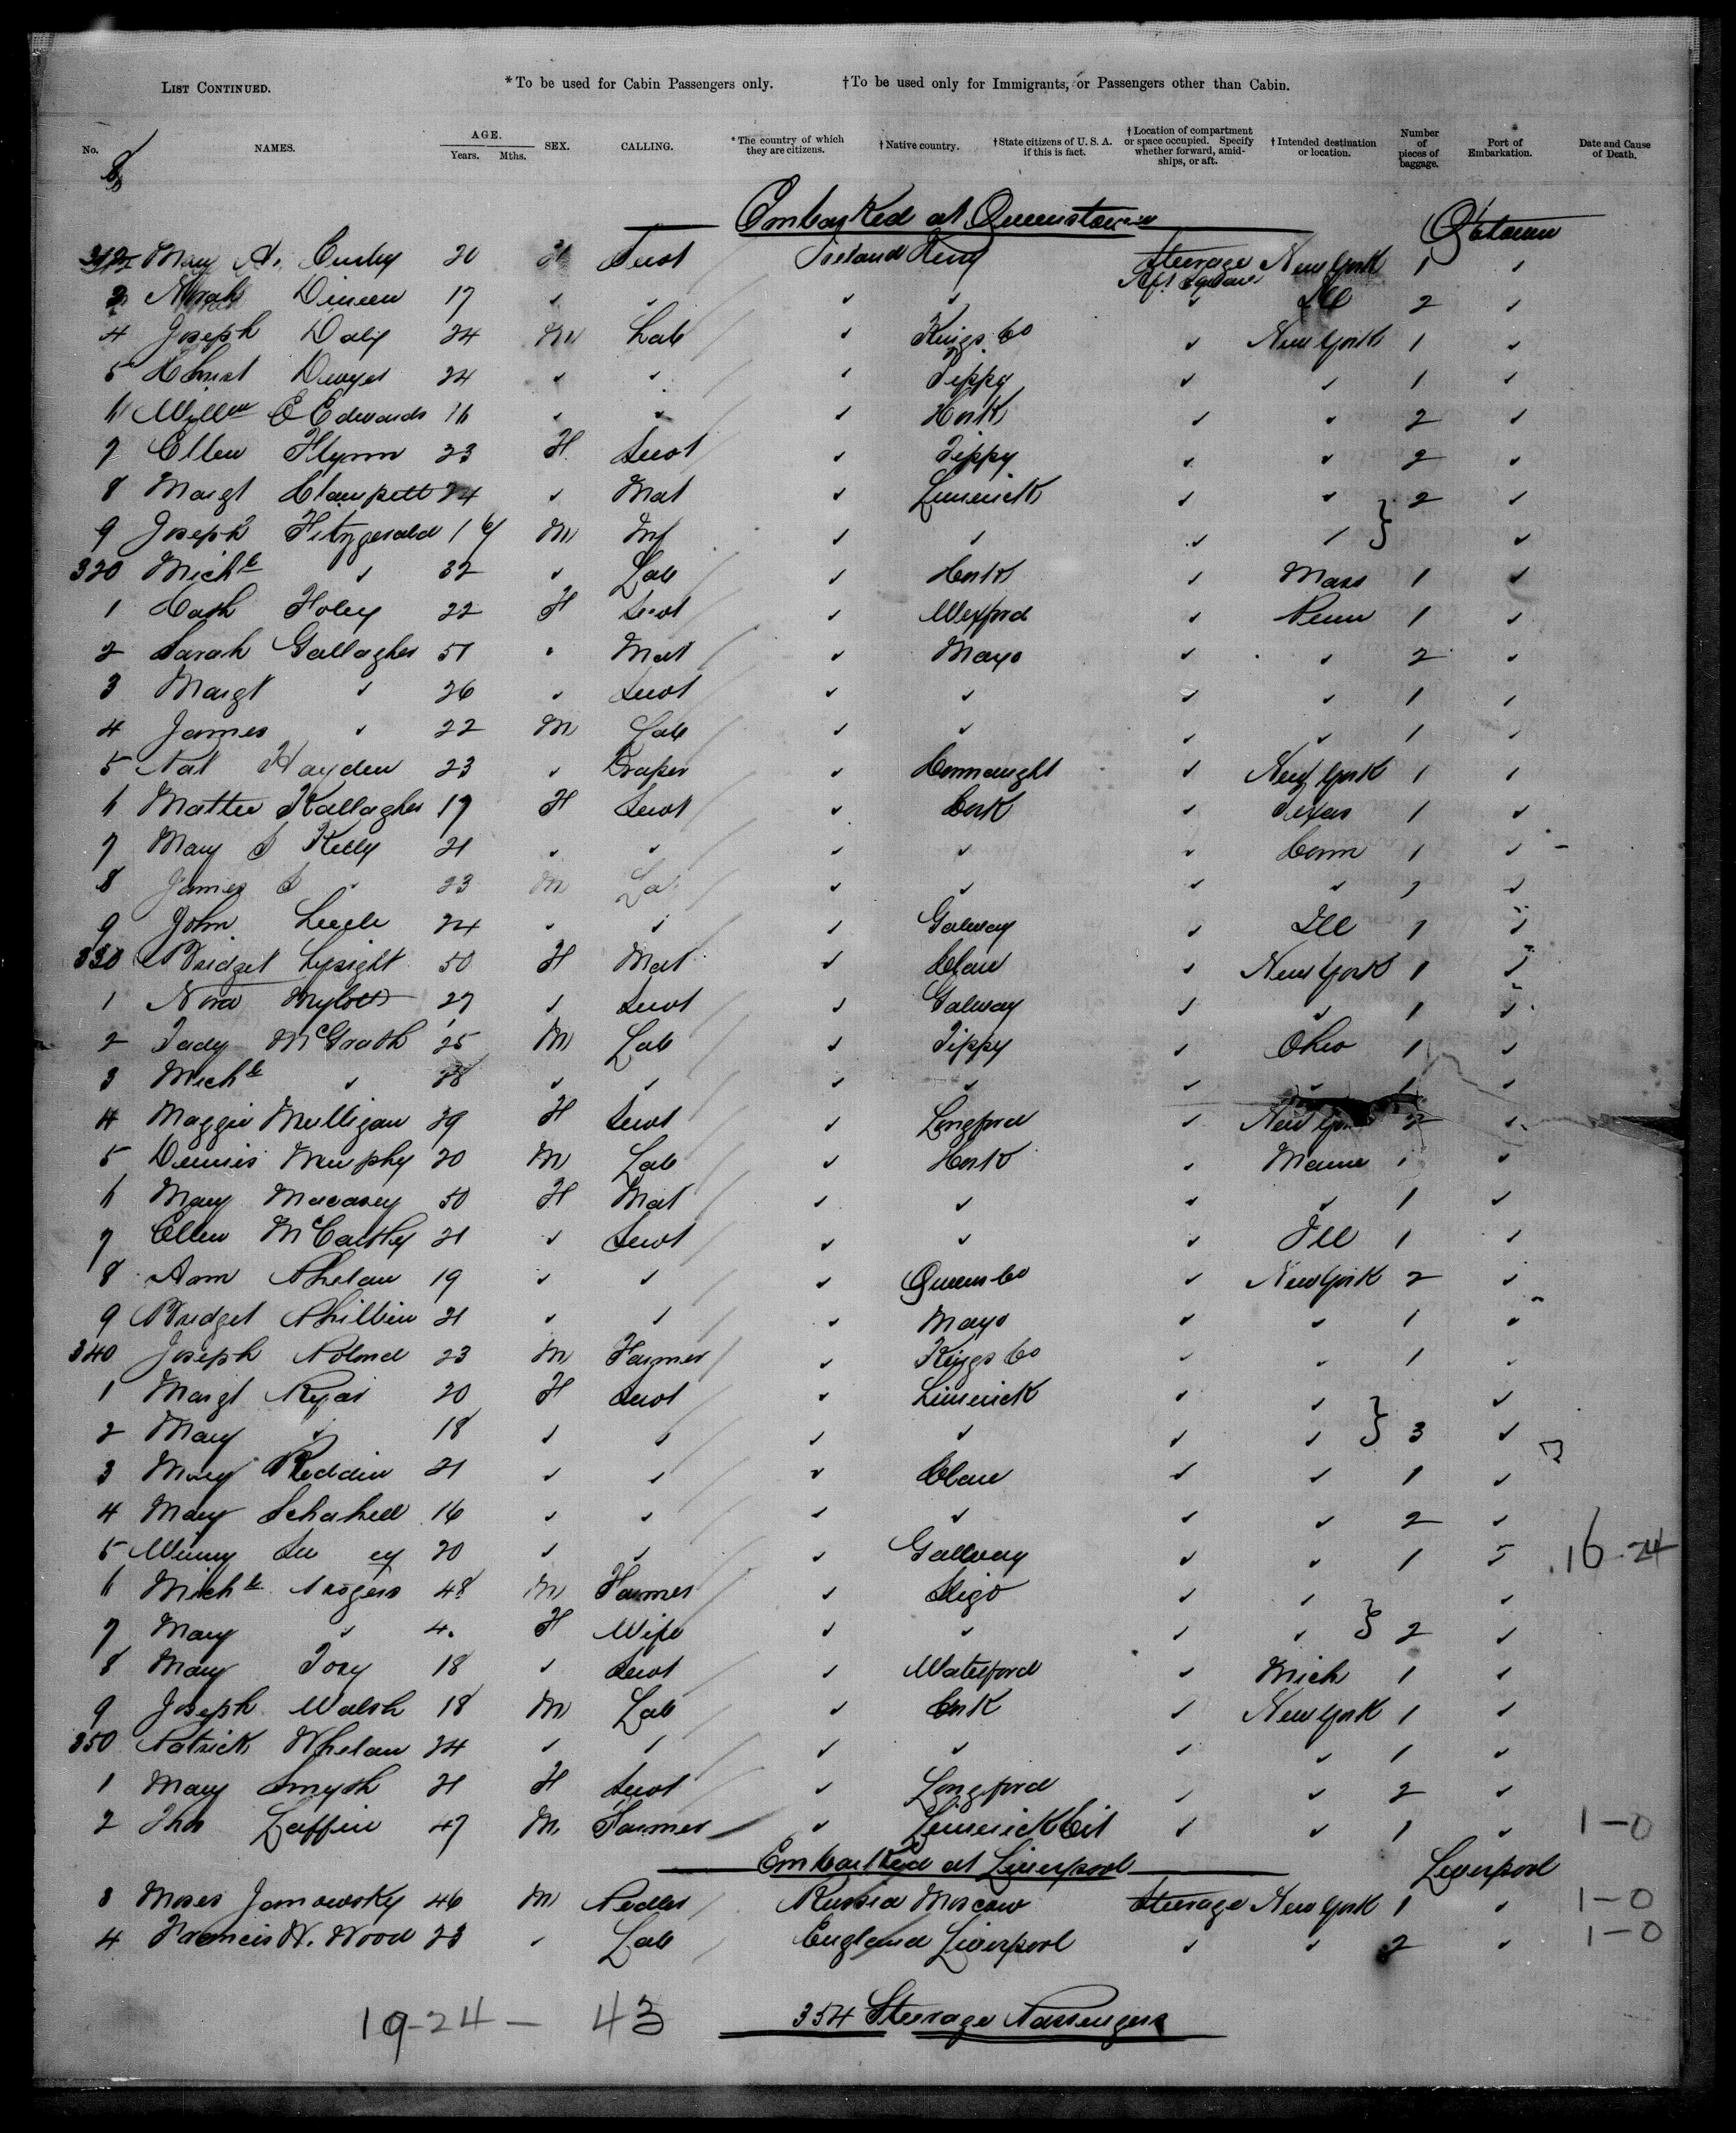 LIST CONTINUED. *To be used for Cabin Passengers only. †To be used only for Immigrants, or Passengers other than Cabin.
No. NAMES. AGE. Years. Mths. SEX. CALLING. *The country of which they are citizens. †Native country. †State citizens of U. S. A. if this is fact. †Location of compartment or space occupied. Specify whether forward, amidships, or aft. †Intended destination or location. Number of pieces of baggage. Port of Embarkation. Date and Cause of Death.
8
Embarked at Queenstown Qtown
Mary A. 20 Servt Ireland Steerage New York 1 ✓
Norah Dineen 17 ✓ ✓ ✓ ✓ ✓ Ill 2 ✓
4 Joseph Daly 24 M Lab ✓ Kings Co ✓ New York 1 ✓
5 Christ Dwyer 24 ✓ ✓ ✓ Tippy ✓ ✓ 1 ✓
6 Willm E Edwards 16 ✓ ✓ ✓ Cork ✓ ✓ 2 ✓
7 Ellen Flynn 23 F Servt ✓ Tippy ✓ ✓ 2 ✓
8 Margt Clampett 24 ✓ Mat ✓ Limerick ✓ ✓ } 2 ✓
9 Joseph Fitzgerald 1 M Inf ✓ ✓ ✓ ✓ ✓
320 Michl ✓ 32 ✓ Lab ✓ Cork ✓ Mass 1 ✓
1 Cath Foley 22 F Servt ✓ Wexford ✓ Penn 1 ✓
2 Sarah Gallagher 51 ✓ Mat ✓ Mayo ✓ ✓ 2 ✓
3 Margt ✓ 26 ✓ Servt ✓ ✓ ✓ ✓ 1 ✓
4 James ✓ 22 M Lab ✓ ✓ ✓ ✓ 1 ✓
5 Nat Hayden 23 ✓ Draper ✓ Connaught ✓ New York 1 ✓
6 Mattie Kallagher 19 F Servt ✓ Cork ✓ Texas 1 ✓
7 Mary J Kelly 21 ✓ ✓ ✓ ✓ ✓ Conn 1 ✓
8 James J ✓ 23 M La ✓ ✓ ✓ ✓ 1 ✓
9 John 24 ✓ ✓ ✓ Galway ✓ Ill 1 ✓
330 Bridget Lysight 50 F Mat ✓ Clare ✓ New York 1 ✓
1 Nora Mylott 27 ✓ Servt ✓ Galway ✓ ✓ 1 ✓
2 Tady McGrath 25 M Lab ✓ Tippy ✓ Ohio 1 ✓
3 Michl ✓ 28 ✓ ✓ ✓ ✓ ✓ ✓ 1 ✓
4 Maggie Mulligan 29 F Servt ✓ Longford ✓ New York 2 ✓
5 Dennis Murphy 20 M Lab ✓ Cork ✓ Maine 1 ✓
6 Mary 50 F Mat ✓ ✓ ✓ ✓ 1 ✓
7 Ellen McCarthy 21 ✓ Servt ✓ ✓ ✓ Ill 1 ✓
8 Ann Phelan 19 ✓ ✓ ✓ Queens Co ✓ New York 2 ✓
9 Bridget Philbin 21 ✓ ✓ ✓ Mayo ✓ ✓ 1 ✓
340 Joseph 23 M Farmer ✓ Kings Co ✓ ✓ 1 ✓
1 Margt Ryan 20 F Servt ✓ Limerick ✓ ✓ ✓
2 Mary ✓ 18 ✓ ✓ ✓ ✓ ✓ ✓ } 3 ✓
3 Mary Reddin 21 ✓ ✓ ✓ Clare ✓ ✓ 1 ✓
4 Mary 16 ✓ ✓ ✓ ✓ ✓ ✓ 2 ✓
5 Winny 20 ✓ ✓ ✓ Galway ✓ ✓ 1 ✓ 16-24
6 Michl Rogers 48 M Farmer ✓ Sligo ✓ ✓ ✓
7 Mary ✓ 4 F Wife ✓ ✓ ✓ ✓ } 2 ✓
8 Mary 18 ✓ Servt ✓ Waterford ✓ Mich 1 ✓
9 Joseph Walsh 18 M Lab ✓ Cork ✓ New York 1 ✓
350 Patrick Whelan 24 ✓ ✓ ✓ ✓ ✓ ✓ 1 ✓
1 Mary Smyth 21 F Servt ✓ Longford ✓ ✓ 2 ✓
2 Thos Laffin 47 M Farmer ✓ Limerick Cit ✓ ✓ 1 ✓ 1-0
Embarked at Liverpool Liverpool
3 Moses Janowsky 46 M Pedler Russia Moscow Steerage New York 1 ✓ 1-0
4 Francis W. Wood 23 ✓ Lab England Liverpool ✓ ✓ 2 ✓ 1-0
19-24 - 43 354 Steerage Passengers